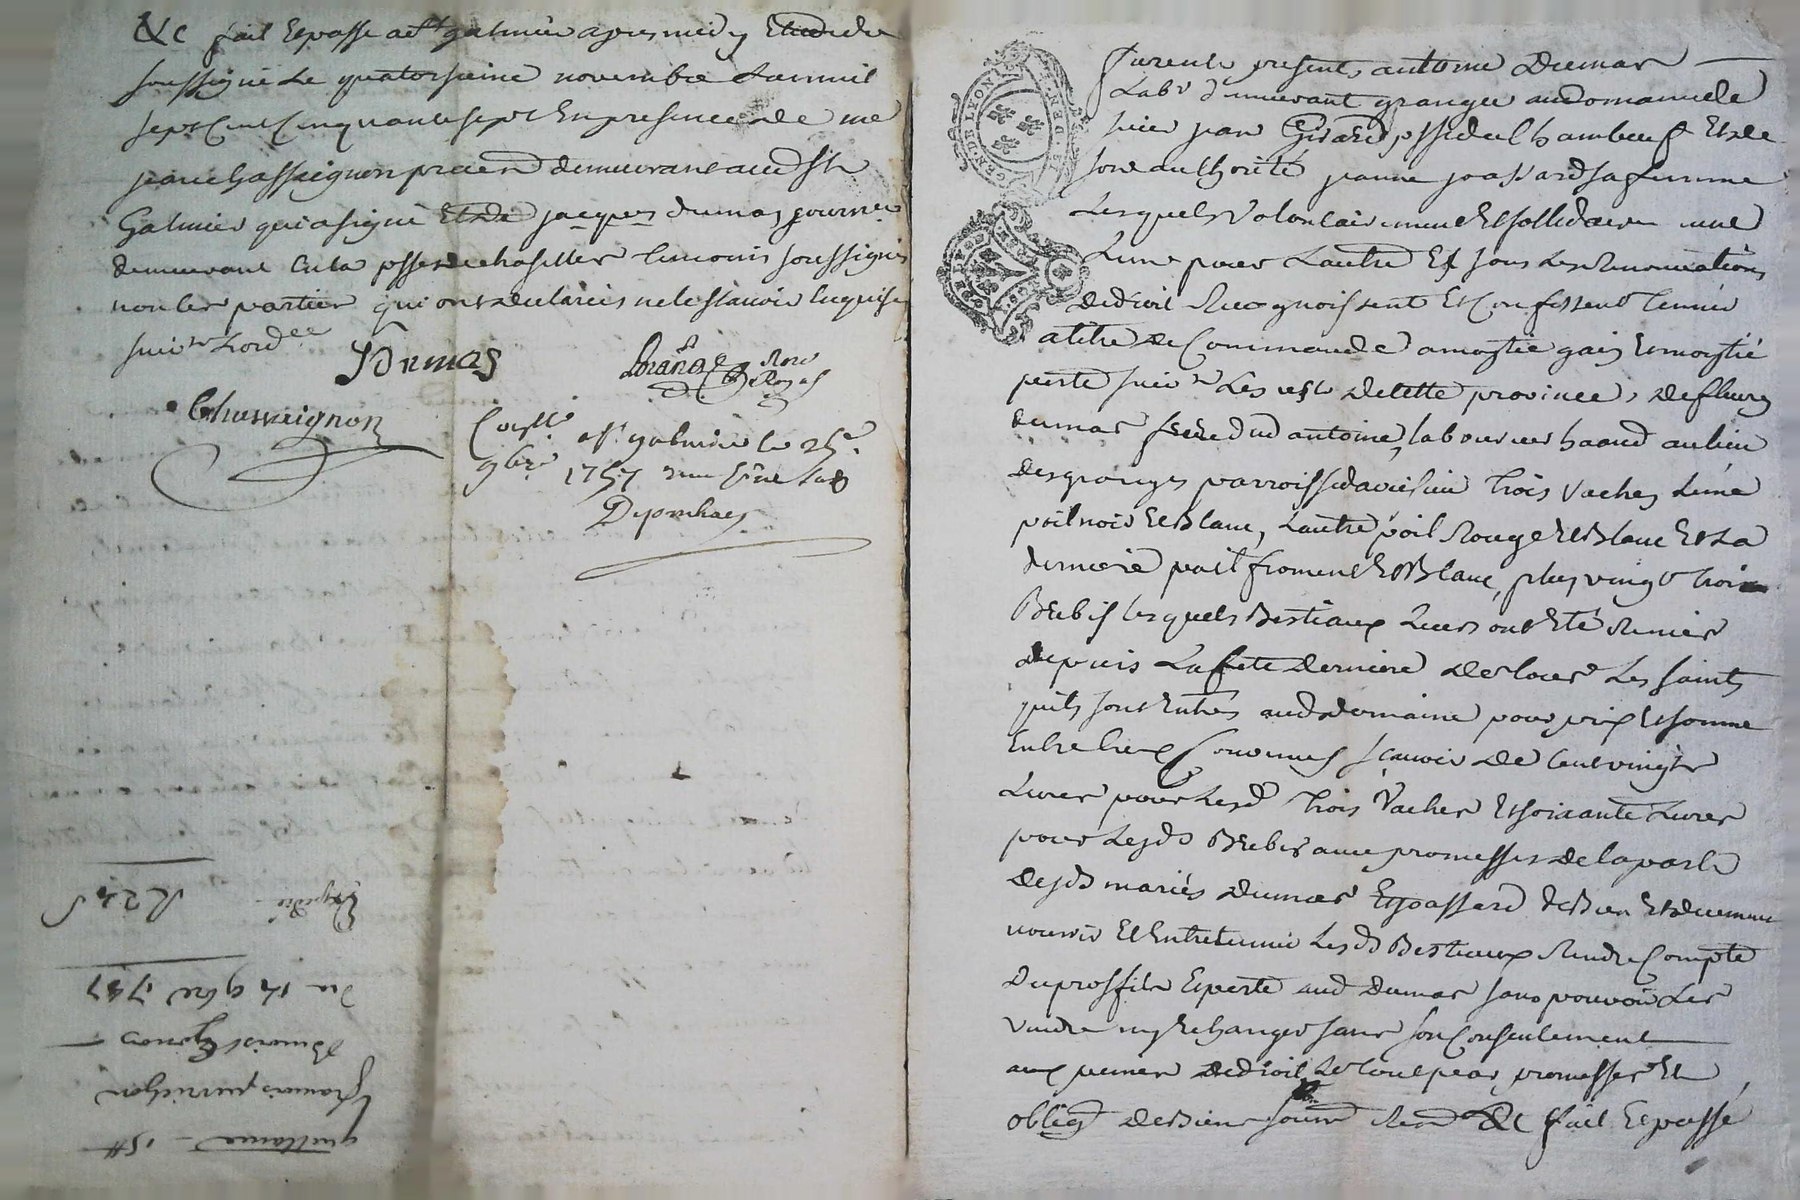 &c fait et passé a St galmier apres midy Etude du
soussigné le quatorzieme novembre l'an mil
sept Cent Cinquante sept En presence de me
jean Chassaignon demeurant aud St
Galmier qui a signé Et de jacques dumas
demeurant temoins soussignés
non les parties qui ont declarées ne le scavoir Enquises
suivt Lordce
JDumas
Chassaignon
Collé a St galmier le
9bre 1757
GEN. DE LYON
furent presents antoine Dumas
Labr demeurant granger au domaine de
sieur jean Girard Et de
son authorité jeanne joassard sa femme
Lesquels Volontairement Et sollidairemt
L'une pour Lautre Et sous Les Renonciations
de droit Recognoissent Et Confessent tenir
a titre de Commande a moytié gain Et moytié
perte suivt Les us de cette province, de fleury
dumas frere dud antoine, laboureur au lieu
des granges parroisse trois Vaches L'une
poil noir Et Blanc, Lautre poil Rouge Et Blanc Et La
derniere poil froment Et Blanc, plus vingt trois
Brebis lesquels Bestiaux Leurs ont Eté Remis
depuis La fete derniere de tous Les saints
quils sont Entrés aud domaine pour prix Et somme
Entre Eux Convenus scavoir de Cent vingts
Livres pour Lesd trois Vaches Et soixante Livres
pour Lesds Brebis avec promesses de la part
desds mariés dumas Et joassard de Bien Et duement
nourir Et Entretennir Lesds Bestiaux Rendre Compte
du proffits Et perte aud dumas sans pouvoir Les
Vendre ny Echanger sans son Consentement
aux peines de droit Le tout par promesses Et
obligé de Biens soumis Renon &c fait Et passé
Expedié
R 24 s
du 14 9bre 1757
françois
guillaume - 15